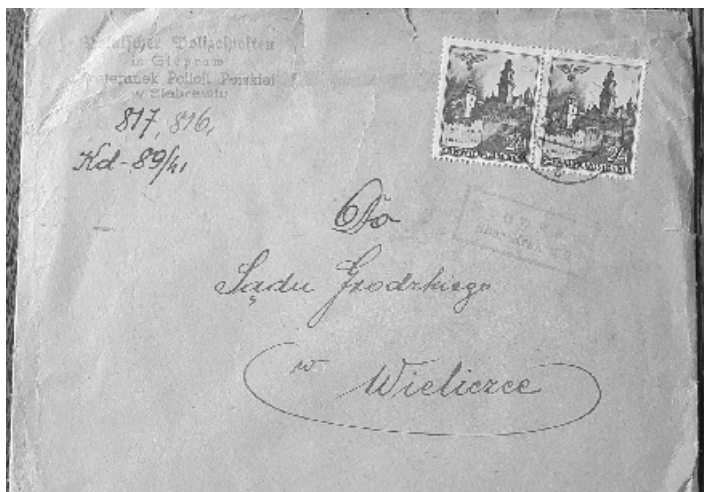 Polnischer Polizeiposten
in Siepraw
Posterunek Policji Polskiej
w Sieprawiu
817, 816,
Kd-89/41
24 24
Do
Sądu Grodzkiego
w Wieliczce